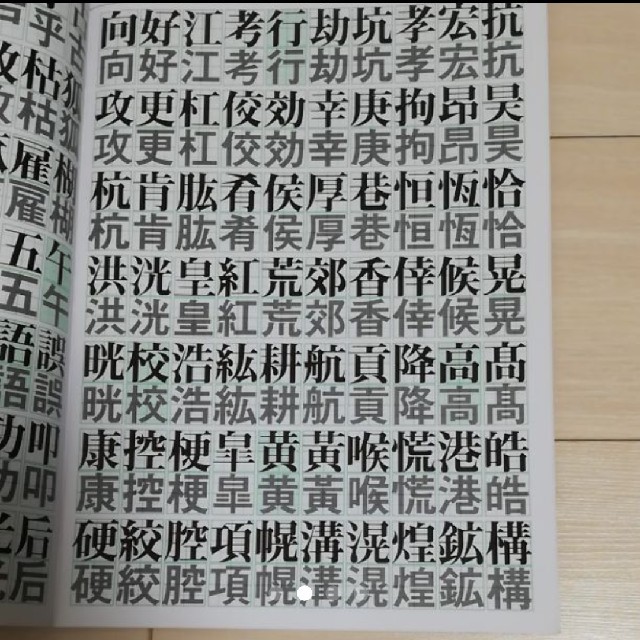 向好江考行劫坑孝宏抗
向好江考行劫坑孝宏抗
攻更杠佼効幸庚拘昂昊
攻更杠佼効幸庚拘昂昊
杭肯肱肴侯厚巷恒恆恰
杭肯肱肴侯厚巷恒恆恰
洪洸皇紅荒郊香倖候晃
洪洸皇紅荒郊香倖候晃
晄校浩紘耕航貢降高髙
晄校浩紘耕航貢降高髙
康控梗皐黄黃喉慌港皓
康控梗皐黄黃喉慌港皓
硬絞腔項幌溝滉煌鉱構
硬絞腔項幌溝滉煌鉱構
枯狐
枯狐
雇糊
雇糊
五午
五午
語誤
語誤
功叩
功叩
光后
光后